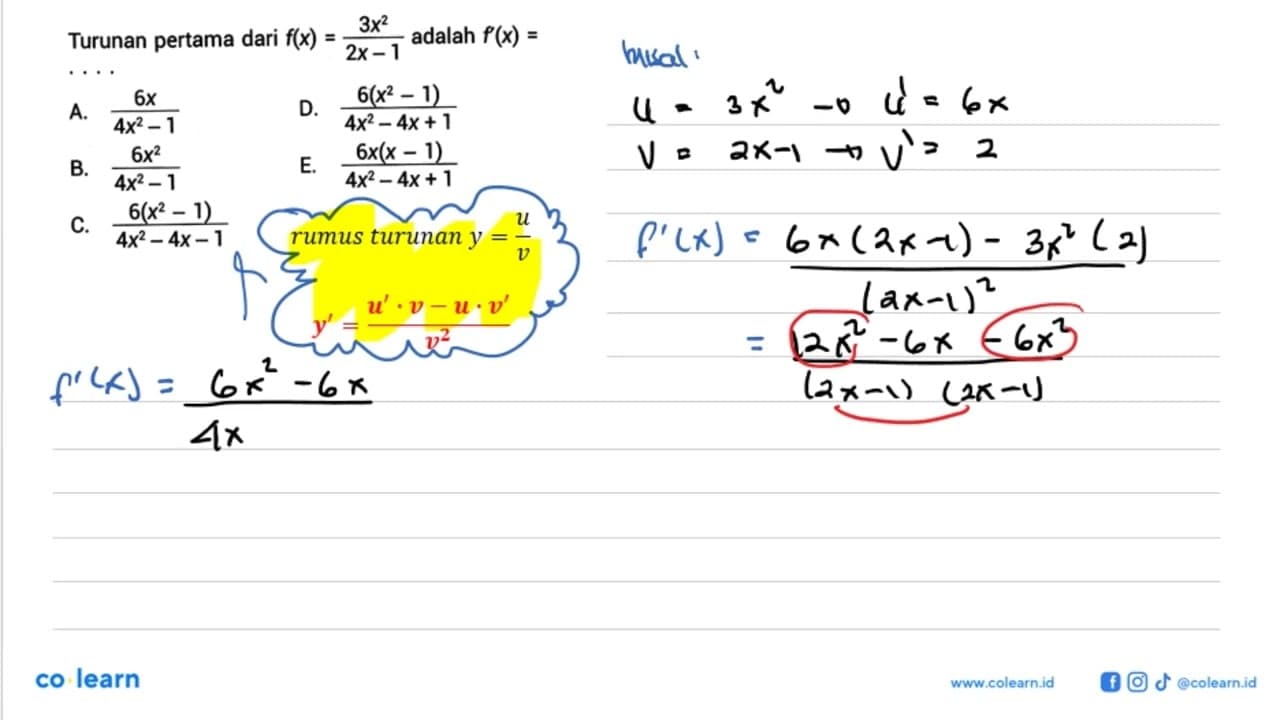 Turunan pertama dari f(x) = 3x²/2x – 1 adalah f'(x) =
. . . .
A. 6x/4x² – 1
B. 6x²/4x² – 1
C. 6(x² – 1)/4x² – 4x – 1
D. 6(x² – 1)/4x² – 4x + 1
E. 6x(x – 1)/4x² – 4x + 1
rumus turunan y = u/v
y' = u' · v – u · v'/v²
misal :
u = 3x² → u' = 6x
v = 2x-1 → v' = 2
f'(x) = 6x(2x-1) - 3x²(2)/(2x-1)²
= 12x² - 6x - 6x²/(2x-1) (2x-1)
f'(x) = 6x² - 6x/4x
co learn
www.colearn.id
@colearn.id